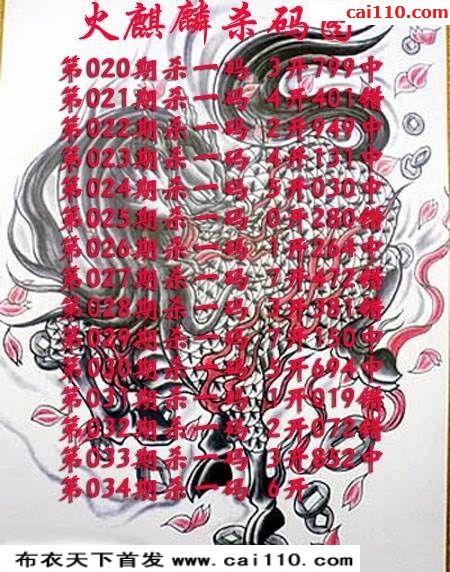 cai110.com
火麒麟杀码图
第020期杀一码 3开799中
第021期杀一码 4开401错
第022期杀一码 2开949中
第023期杀一码 4开131中
第024期杀一码 5开030中
第025期杀一码 0开280错
第026期杀一码 1开264中
第027期杀一码 7开472错
第028期杀一码 3开381错
第029期杀一码 7开150中
第030期杀一码 5开694中
第031期杀一码 1开019错
第032期杀一码 2开072错
第033期杀一码 3开852中
第034期杀一码 6开
布衣天下首发 www.cai110.com